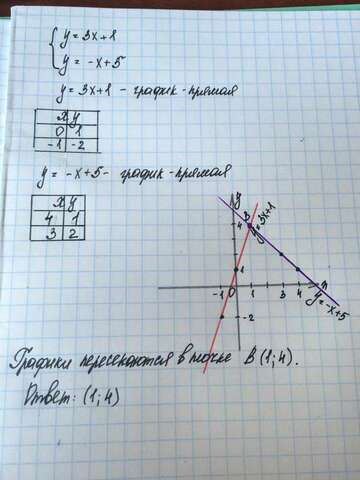 { y = 3x+1
y = -x+5
y = 3x+1 - график-прямая
x y
0 1
-1 -2
y = -x+5 - график-прямая
x y
4 1
3 2
y
4 B
y=3x+1
1
-1 0 1 3 4 x
y=-x+5
-2
Графики пересекаются в точке B (1; 4).
Ответ: (1; 4)